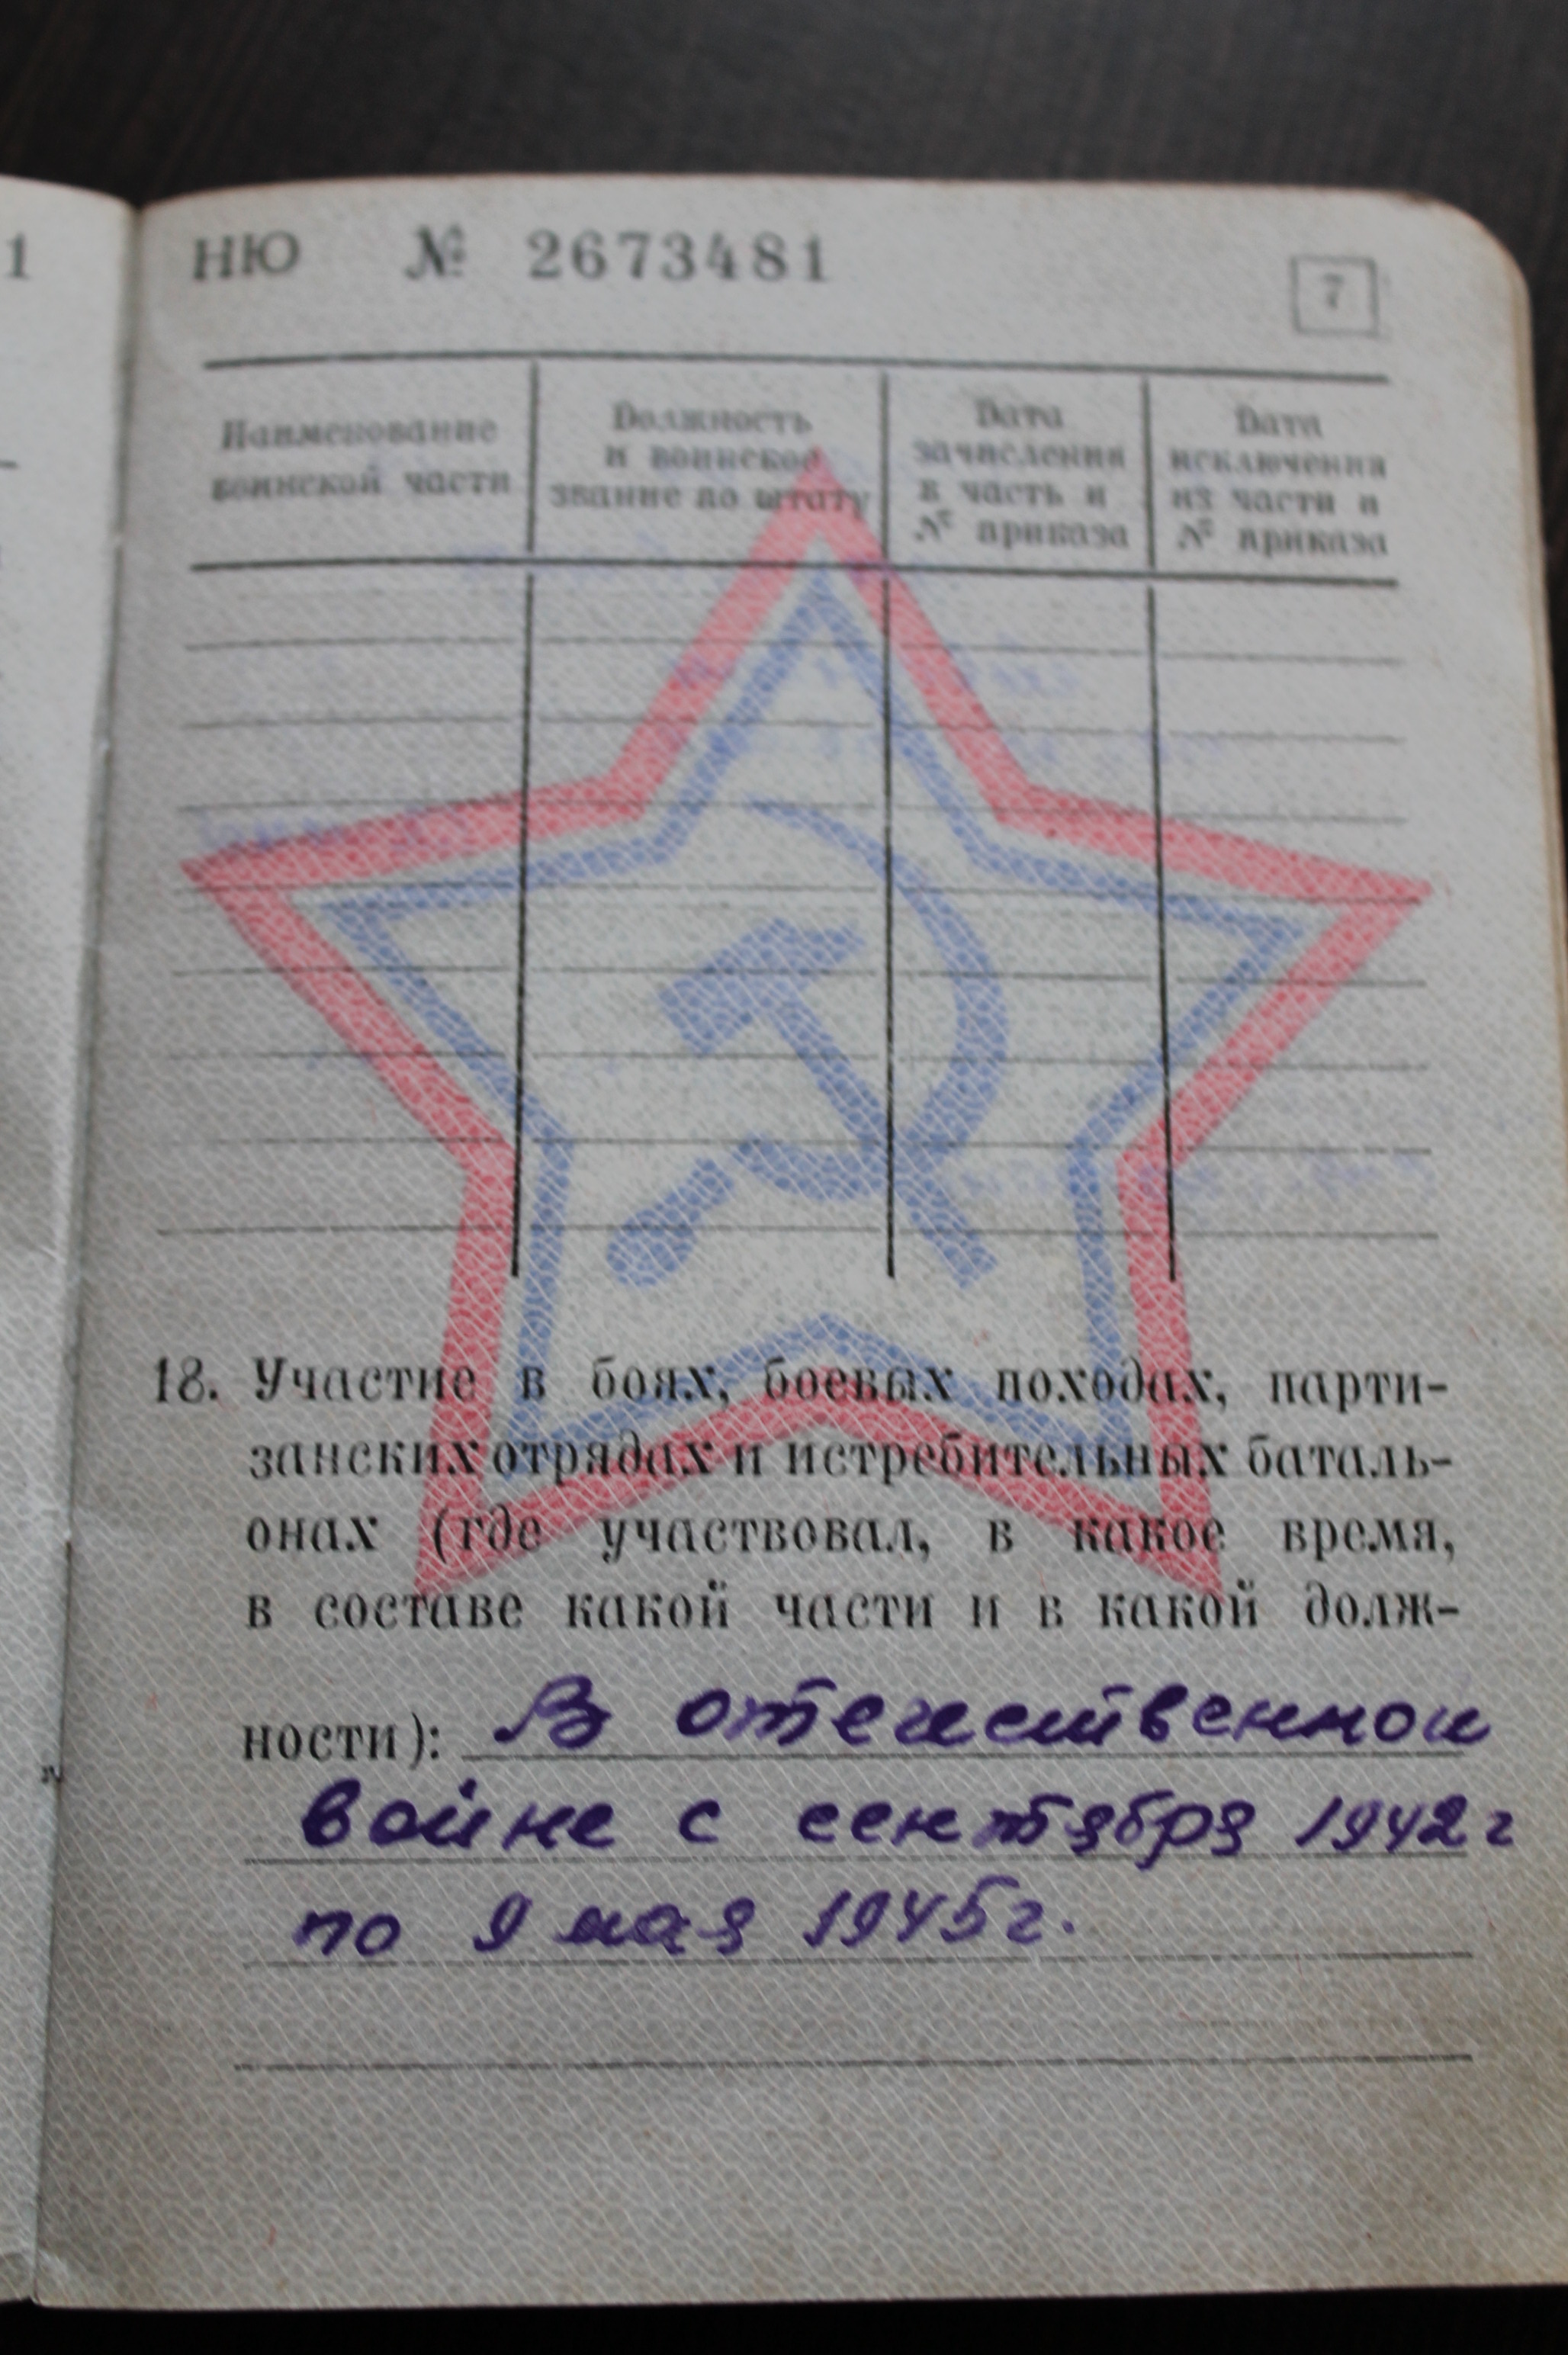 1
НЮ № 2673481
7
Наименование воинской части
Должность и воинское звание по штату
Дата зачисления в часть и № приказа
Дата исключения из части и № приказа
18. Участие в боях, боевых походах, парти-
занских отрядах и истребительных баталь-
онах (где участвовал, в какое время,
в составе какой части и в какой долж-
ности): В отечественной
войне с сентября 1942 г
по 9 мая 1945 г.